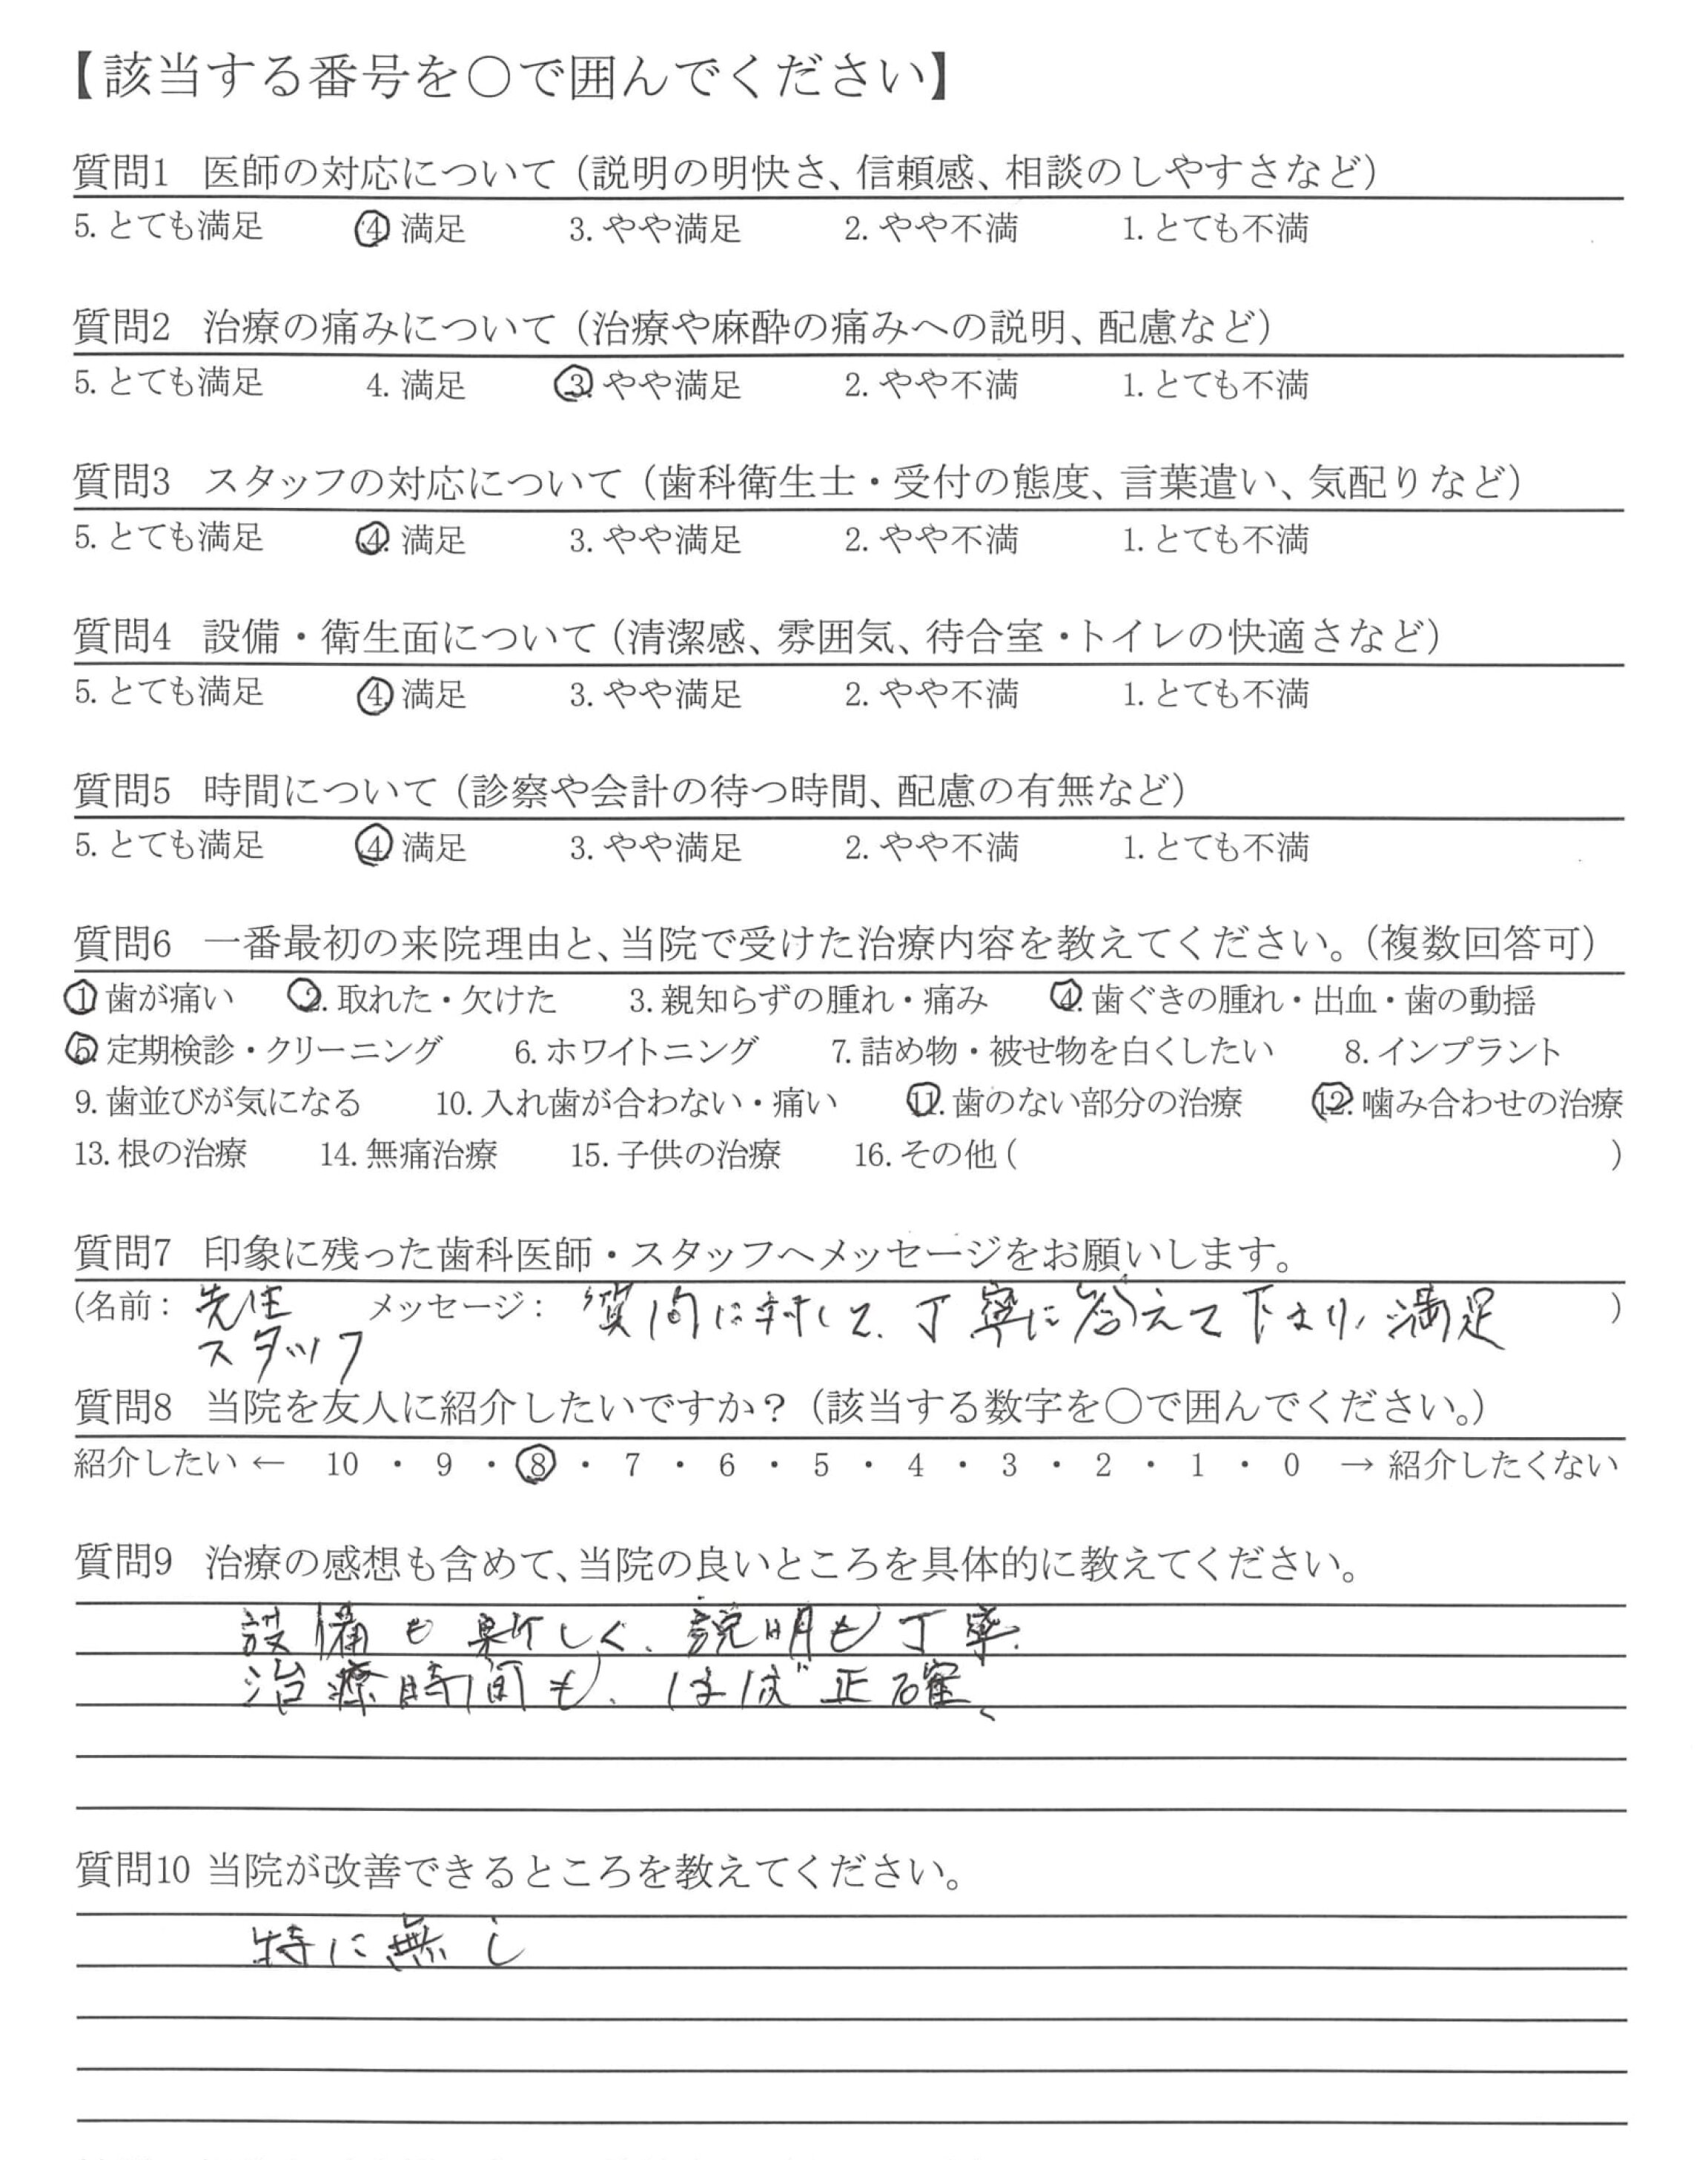 【該当する番号を○で囲んでください】
質問1 医師の対応について（説明の明快さ、信頼感、相談のしやすさなど）
5. とても満足 4. 満足 3. やや満足 2. やや不満 1. とても不満
質問2 治療の痛みについて（治療や麻酔の痛みへの説明、配慮など）
5. とても満足 4. 満足 3. やや満足 2. やや不満 1. とても不満
質問3 スタッフの対応について（歯科衛生士・受付の態度、言葉遣い、気配りなど）
5. とても満足 4. 満足 3. やや満足 2. やや不満 1. とても不満
質問4 設備・衛生面について（清潔感、雰囲気、待合室・トイレの快適さなど）
5. とても満足 4. 満足 3. やや満足 2. やや不満 1. とても不満
質問5 時間について（診察や会計の待つ時間、配慮の有無など）
5. とても満足 4. 満足 3. やや満足 2. やや不満 1. とても不満
質問6 一番最初の来院理由と、当院で受けた治療内容を教えてください。（複数回答可）
1. 歯が痛い 2. 取れた・欠けた 3. 親知らずの腫れ・痛み 4. 歯ぐきの腫れ・出血・歯の動揺
5. 定期検診・クリーニング 6. ホワイトニング 7. 詰め物・被せ物を白くしたい 8. インプラント
9. 歯並びが気になる 10. 入れ歯が合わない・痛い 11. 歯のない部分の治療 12. 噛み合わせの治療
13. 根の治療 14. 無痛治療 15. 子供の治療 16. その他（ ）
質問7 印象に残った歯科医師・スタッフへメッセージをお願いします。
（名前： 先生 メッセージ： 質問に対して、丁寧に答えて下さり、満足 ）
スタッフ
質問8 当院を友人に紹介したいですか？（該当する数字を○で囲んでください。）
紹介したい ← 10 ・ 9 ・ 8 ・ 7 ・ 6 ・ 5 ・ 4 ・ 3 ・ 2 ・ 1 ・ 0 → 紹介したくない
質問9 治療の感想も含めて、当院の良いところを具体的に教えてください。
設備も新しく、説明も丁寧、
治療時間も、ほぼ正確、
質問10 当院が改善できるところを教えてください。
特に無し